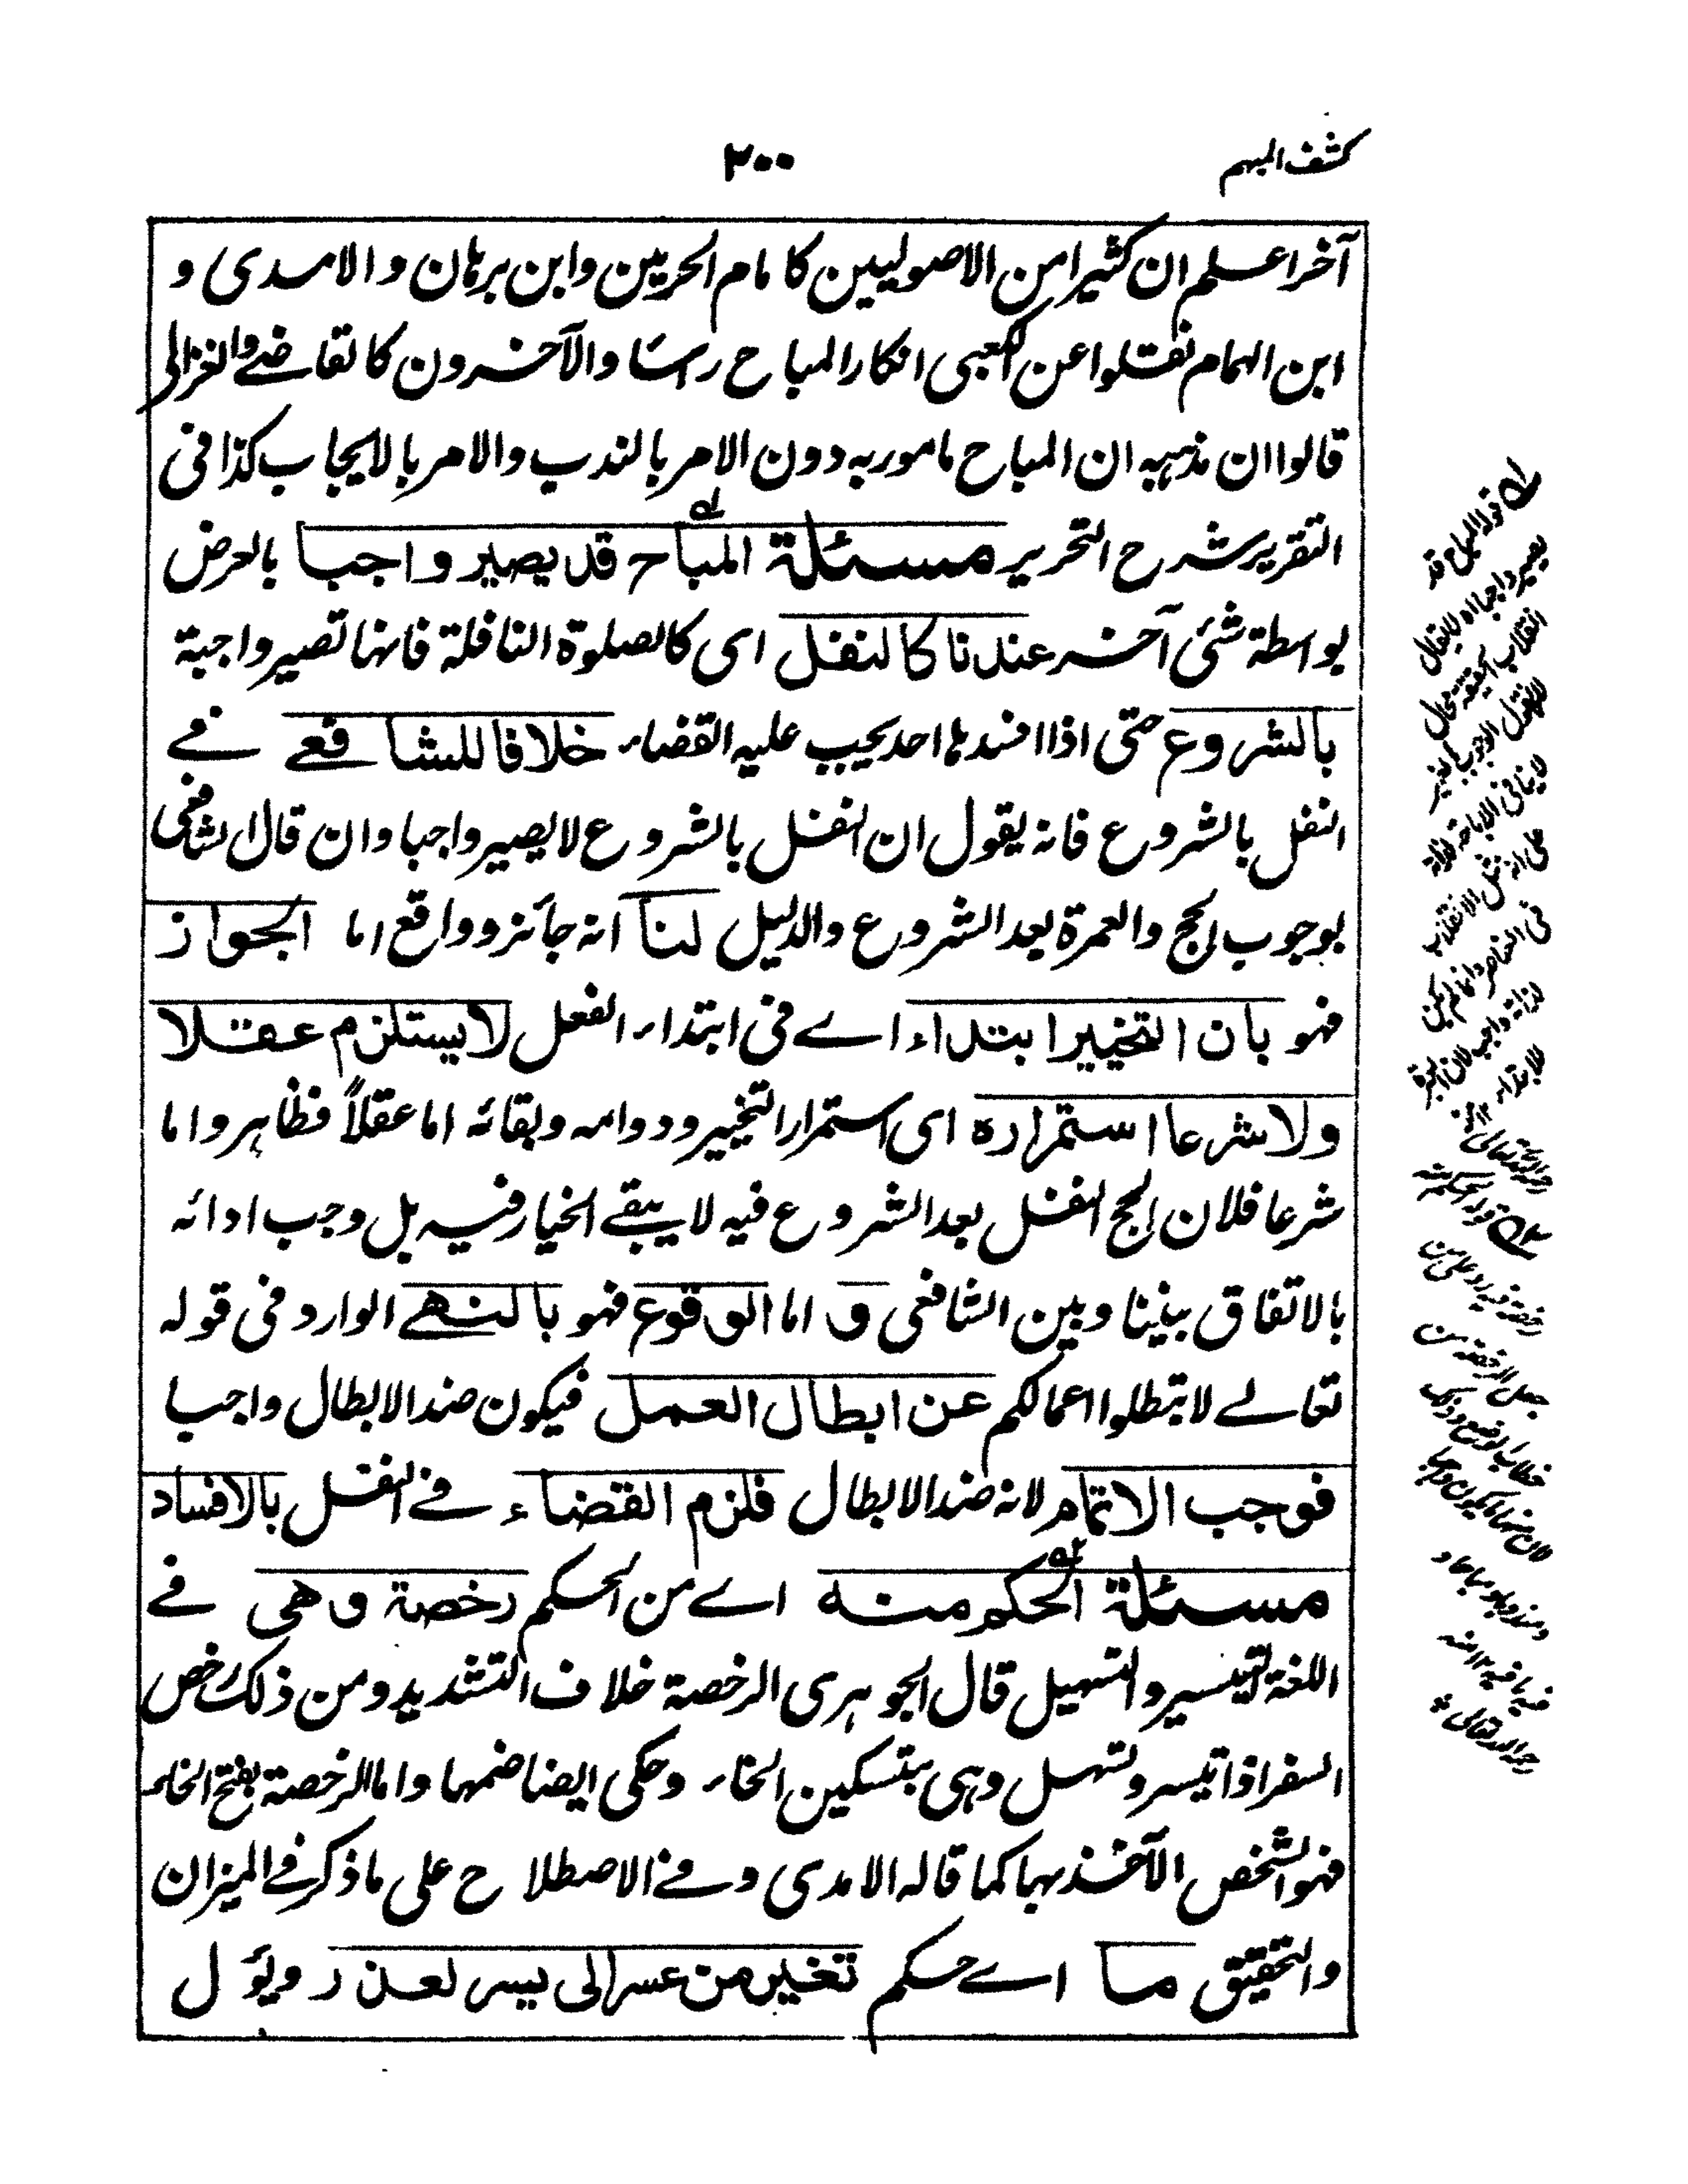 كشف المبهم
٢٠٠
آخر اعلم ان كثيرا من الاصوليين كامام الحرمين وابن برهان والامدى و
ابن الهمام نقلوا عن الكعبى انكار المباح رأسًا والآخرون كالقاضے والغزالى
قالوا ان مذهبه ان المباح مامور به دون الامر بالندب والامر بالايجاب كذا فى
التقرير شرح التحرير مسئلة المباح قد يصير واجبا بالعرض
بواسطة شئى آخر عندنا كالنفل اى كالصلوة النافلة فانها تصير واجبة
بالشروع حتى اذا افسدها احد يجب عليه القضاء خلافا للشافعے فے
النفل بالشروع فانه يقول ان النفل بالشروع لا يصير واجبا وان قال الشافعى
بوجوب الحج والعمرة بعد الشروع والدليل لنا انه جائز وواقع اما الجواز
فهو بان التخيير ابتداء اے فى ابتداء الفعل لا يستلزم عقلا
ولا شرعا استمراره اى استمرار التخيير ودوامه وبقائه اما عقلاً فظاهر واما
شرعا فلان الحج النفل بعد الشروع فيه لا يبقے الخيار فيه بل وجب ادائه
بالاتفاق بيننا وبين الشافعى و اما الوقوع فهو بالنهے الوارد فى قوله
تعالے لا تبطلوا اعمالكم عن ابطال العمل فيكون ضد الابطال واجبا
فوجب الاتمام لانه ضد الابطال فلزم القضاء فے النفل بالافساد
مسئلة الحكم منه اے من الحكم رخصة و هى فے
اللغة التيسير والتسهيل قال الجوهرى الرخصة خلاف التشديد ومن ذلك رخص
السفر اذا تيسر وتسهل وهى بتسكين الخاء وحكى ايضا ضمها واما الرخصة بفتح الخاء
فهو الشخص الآخذ بها كما قاله الامدى و فے الاصطلاح على ما ذكر فے الميزان
والتحقيق ما اے حكم تغير من عسر الى يسر لعذر ويؤل
قوله المباح قد
يصير واجبا اه لا يقال
انقلاب الحقيقة محال
لانا نقول الوجوب لغيره
لا ينافى الاباحة لذاته
على انه مثل الانقلاب
فى العناصر وانما لم يكن
رحمه الله تعالى
قوله الحكم منه
رخصة
جعل الرخصة من
خطاب الوضع وذلك
لان منها ما يكون واجبا
ومندوبا ومباحا و
فيه ما فيه ١٢ منه
رحمه الله تعالى